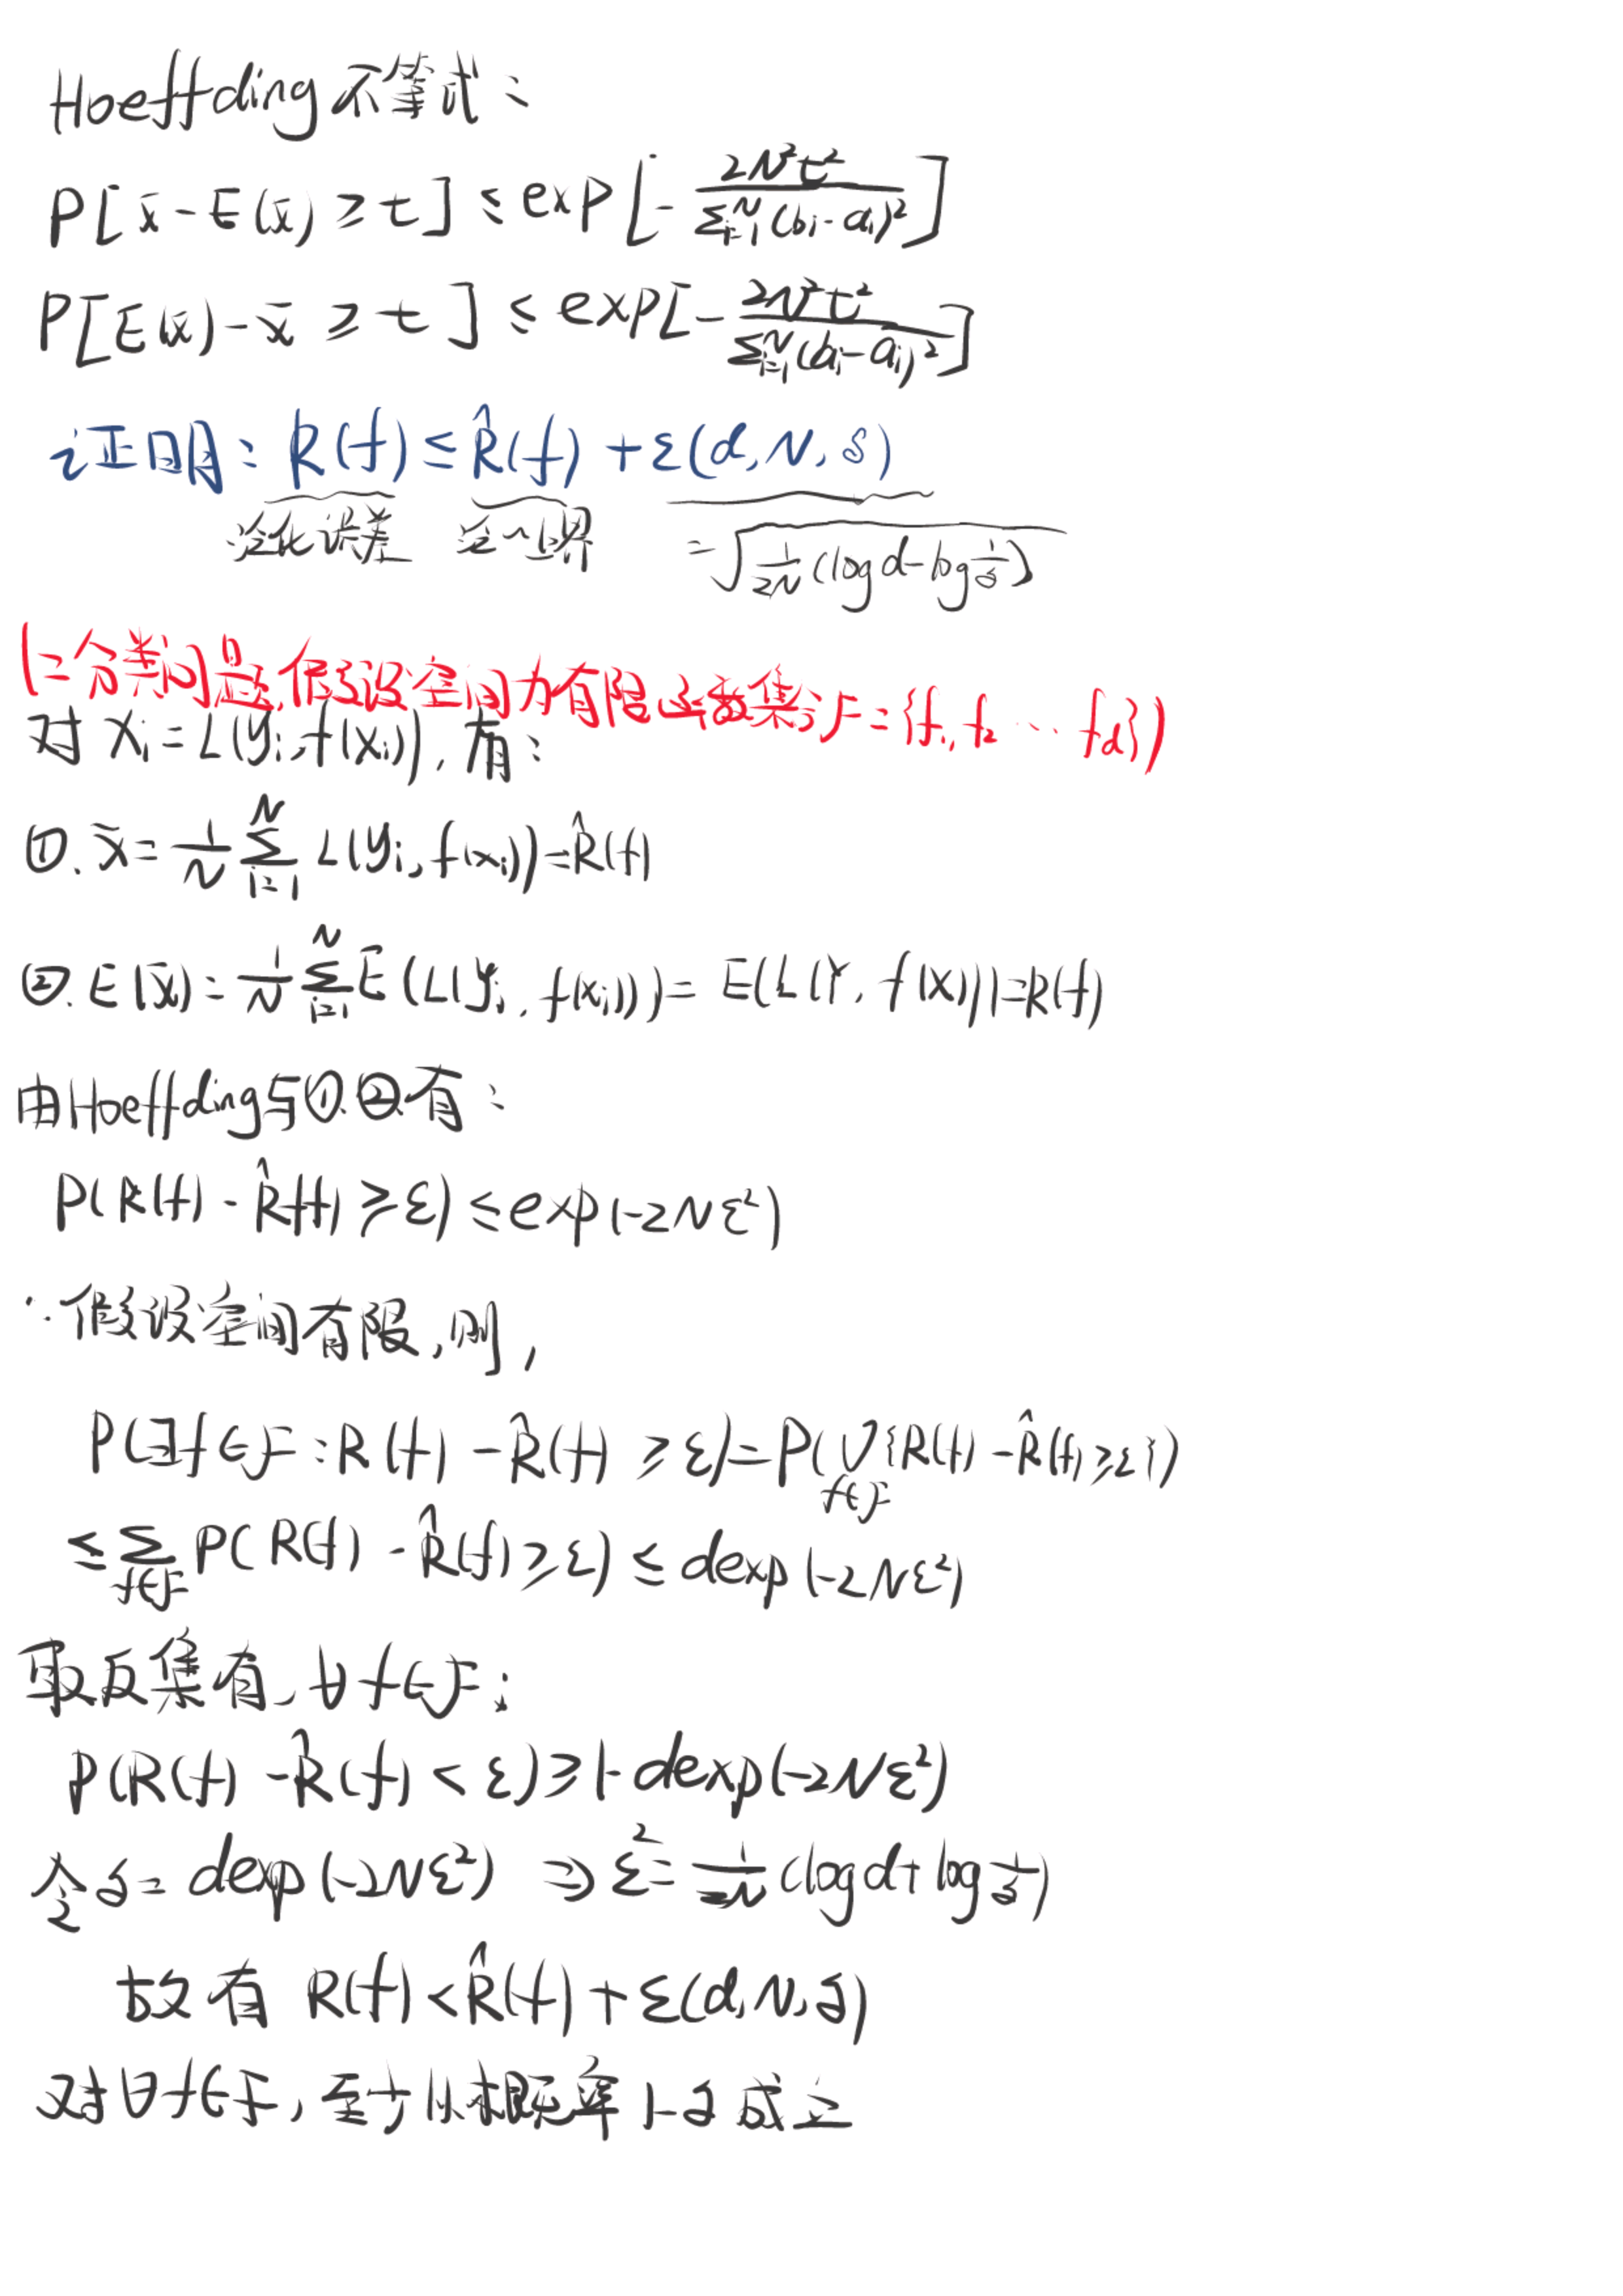 Hoeffding不等式：
P[x̄-E(x̄)≥t]≤exp[-2N²t²/∑ᵢ₌₁ᴺ(bᵢ-aᵢ)²]
P[E(x̄)-x̄≥t]≤exp[-2N²t²/∑ᵢ₌₁ᴺ(bᵢ-aᵢ)²]
证明：R(f)≤R̂(f)+ε(d,N,δ)
泛化误差 泛~上界 =√(1/2N(log d-log 1/δ))
(二分类问题,假设空间为有限函数集合F={f₁,f₂…f_d})
对Xᵢ=L(yᵢ,f(xᵢ)),有：
①.x̄=1/N ∑ᵢ₌₁ᴺ L(yᵢ,f(xᵢ))=R̂(f)
②.E(x̄)=1/N ∑ᵢ₌₁ᴺ E(L(yᵢ,f(xᵢ)))=E(L(Y,f(X)))=R(f)
由Hoeffding与①.②.有：
P(R(f)-R̂(f)≥ε)≤exp(-2Nε²)
∵假设空间有限,则,
P(∃f∈F:R(f)-R̂(f)≥ε)=P(⋃_{f∈F}{R(f)-R̂(f)≥ε})
≤∑_{f∈F}P(R(f)-R̂(f)≥ε)≤dexp(-2Nε²)
取反集有、∀f∈F：
P(R(f)-R̂(f)<ε)≥1-dexp(-2Nε²)
令δ=dexp(-2Nε²) ⇒ε²=1/2N(log d+log 1/δ)
故有 R(f)<R̂(f)+ε(d,N,δ)
对∀f∈F,至少以概率1-δ成立